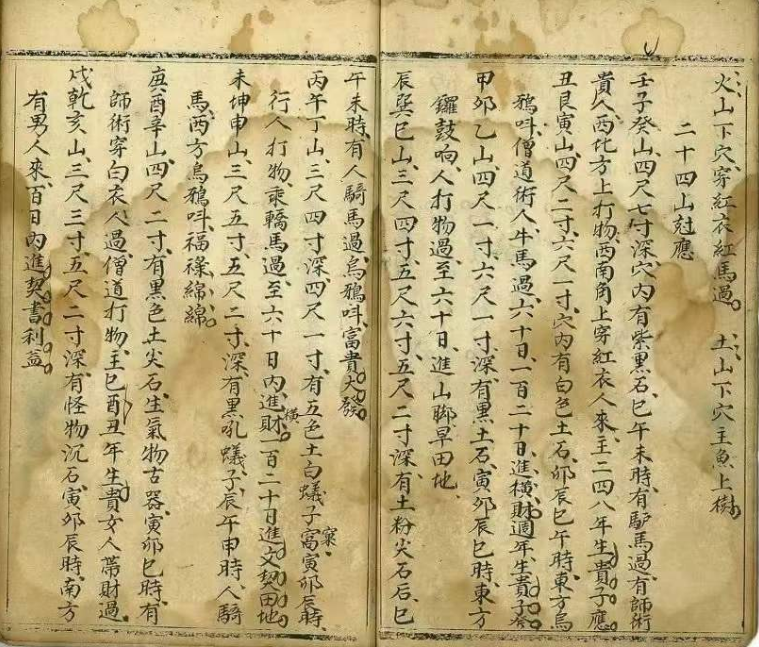 火山下穴穿紅衣紅馬過 土山下穴主魚上樹
二十四山尅應
壬子癸山四尺七寸深穴內有紫黑石巳午未時有馿馬過有師術
貴人西北方上打物西南角上穿紅衣人來主二四八年生貴子應
丑艮寅山四尺二寸六尺一寸穴內有白色土石卯辰巳午時東方烏
鴉呌僧道術人牛馬過六十日一百二十日進橫財週年生貴子答
甲卯乙山四尺一寸六尺一寸深有黑土石寅卯辰巳時東方
鑼鼓响人打物過至六十日進山脚旱田地
辰巽巳山三尺四寸五尺六寸五尺二寸深有土粉尖石后巳
午未時有人騎馬過烏鴉呌富貴大發
丙午丁山三尺四寸深四尺一寸有五色土白蟻子窩寅卯辰時
行人打物乘轎馬過至六十日內進橫財一百二十日進文契田地
未坤申山三尺五寸五尺二寸深有黑吼蟻子辰午申時人騎
馬西方烏鴉呌福祿綿綿
庚酉辛山四尺二寸有黑色土尖石生氣物古器寅卯巳時有
師術穿白衣人過僧道打物主巳酉丑年生貴女人帶財過
戌乾亥山三尺三寸五尺二寸深有怪物沉石寅卯辰時南方
有男人來百日內進契書利益